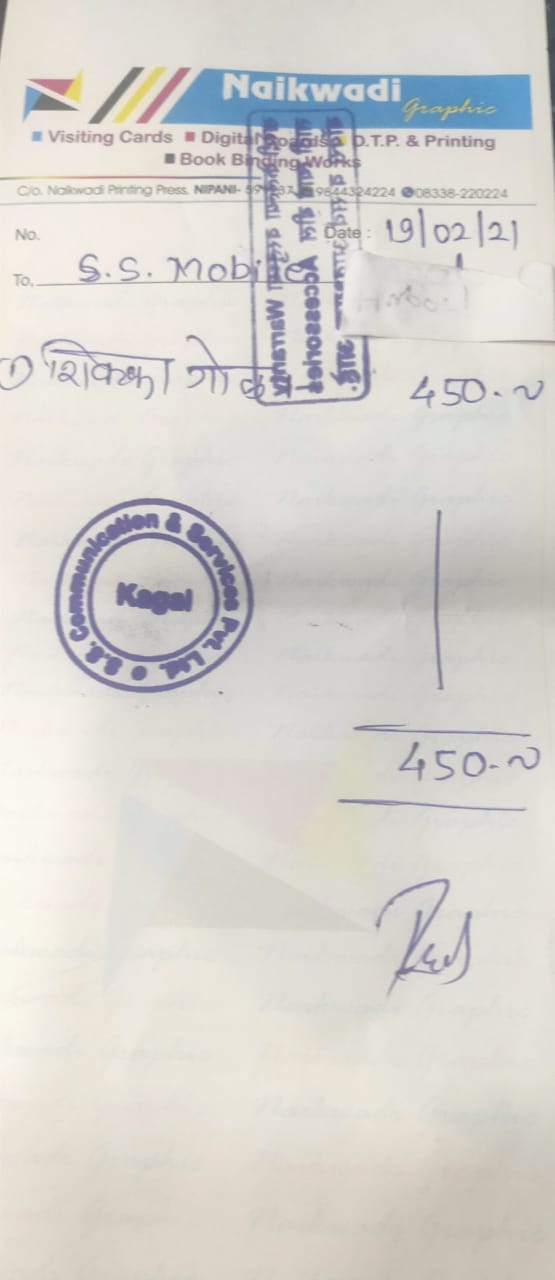 Naikwadi
Graphic
Visiting Cards Digital D.T.P. & Printing
Book Binding Works
C/o. Naikwadi Printing Press, NIPANI- 9844324224 08338-220224
No. Date : 19/02/21
To, S.S. Mobile
1) शिक्का गोल 450.00
S.S. Communication & Services Pvt. Ltd.
Kagal
450.00